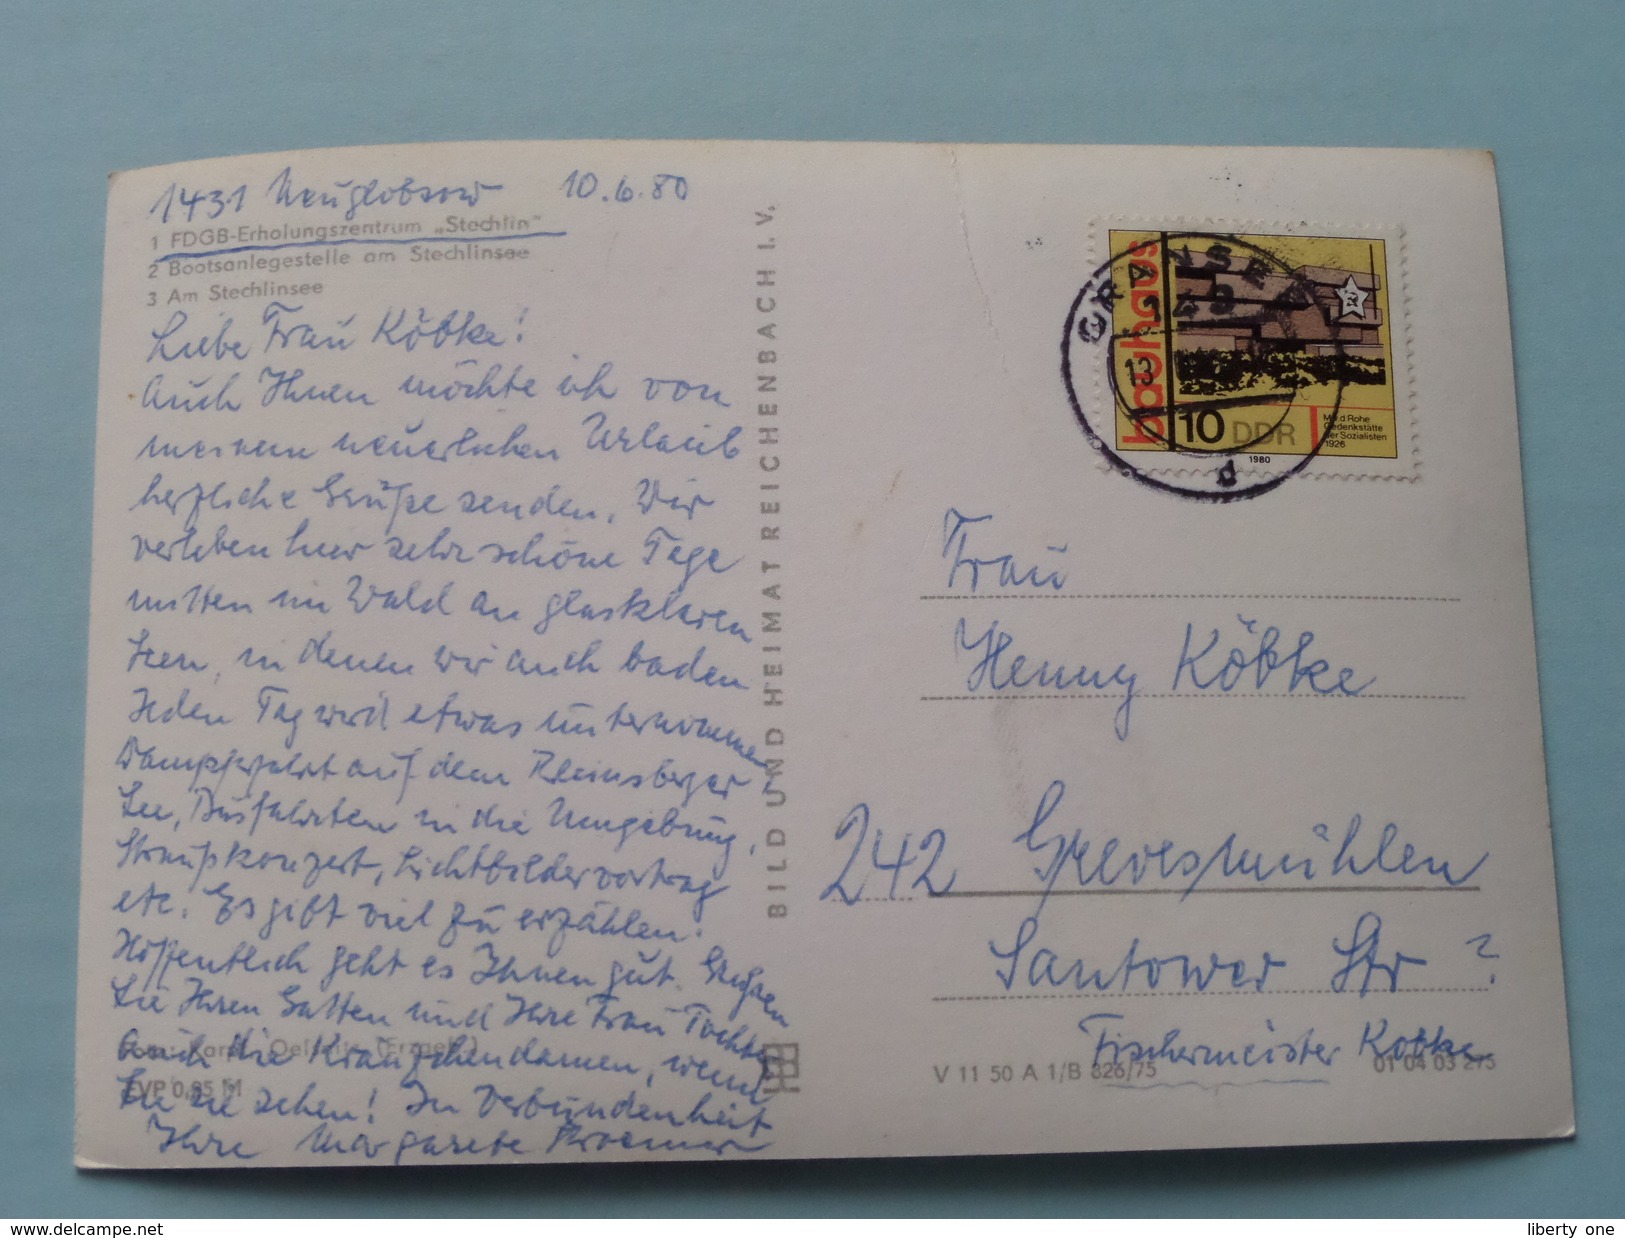 1431 Neuglobsow 10.6.80
1 FDGB-Erholungszentrum „Stechlin"
2 Bootsanlegestelle am Stechlinsee
3 Am Stechlinsee
Liebe Frau Köbke!
Auch Ihnen möchte ich von
meinem neuerlichen Urlaub
herzliche Grüße senden. Wir
verleben hier sehr schöne Tage
mitten im Wald an glasklaren
Seen, in denen wir auch baden
Jeden Tag wird etwas unternommen
Dampferfahrt auf dem Rheinsberger
See, Busfahrten in die Umgebung,
Straußkonzert, Lichtbildervortrag
etc. Es gibt viel zu erzählen.
Hoffentlich geht es Ihnen gut. Grüßen
Sie Ihren Gatten und Ihre Frau Tochter
Auch die Kränzchendamen, wenn
Sie sie sehen! In Verbundenheit
Ihre Margarete
(Erzgeb.)
EVP 0,95 M
BILD UND HEIMAT REICHENBACH I. V.
GRANSEE
143
13
d
bauhaus
10 DDR
M.v.d.Rohe
Gedenkstätte
der Sozialisten
1926
1980
Frau
Henny Köbke
242 Grevesmühlen
Santower Str ?
Fischermeister Kobke
V 11 50 A 1/B 826/75 01 04 03 275
delcampe.net
liberty one